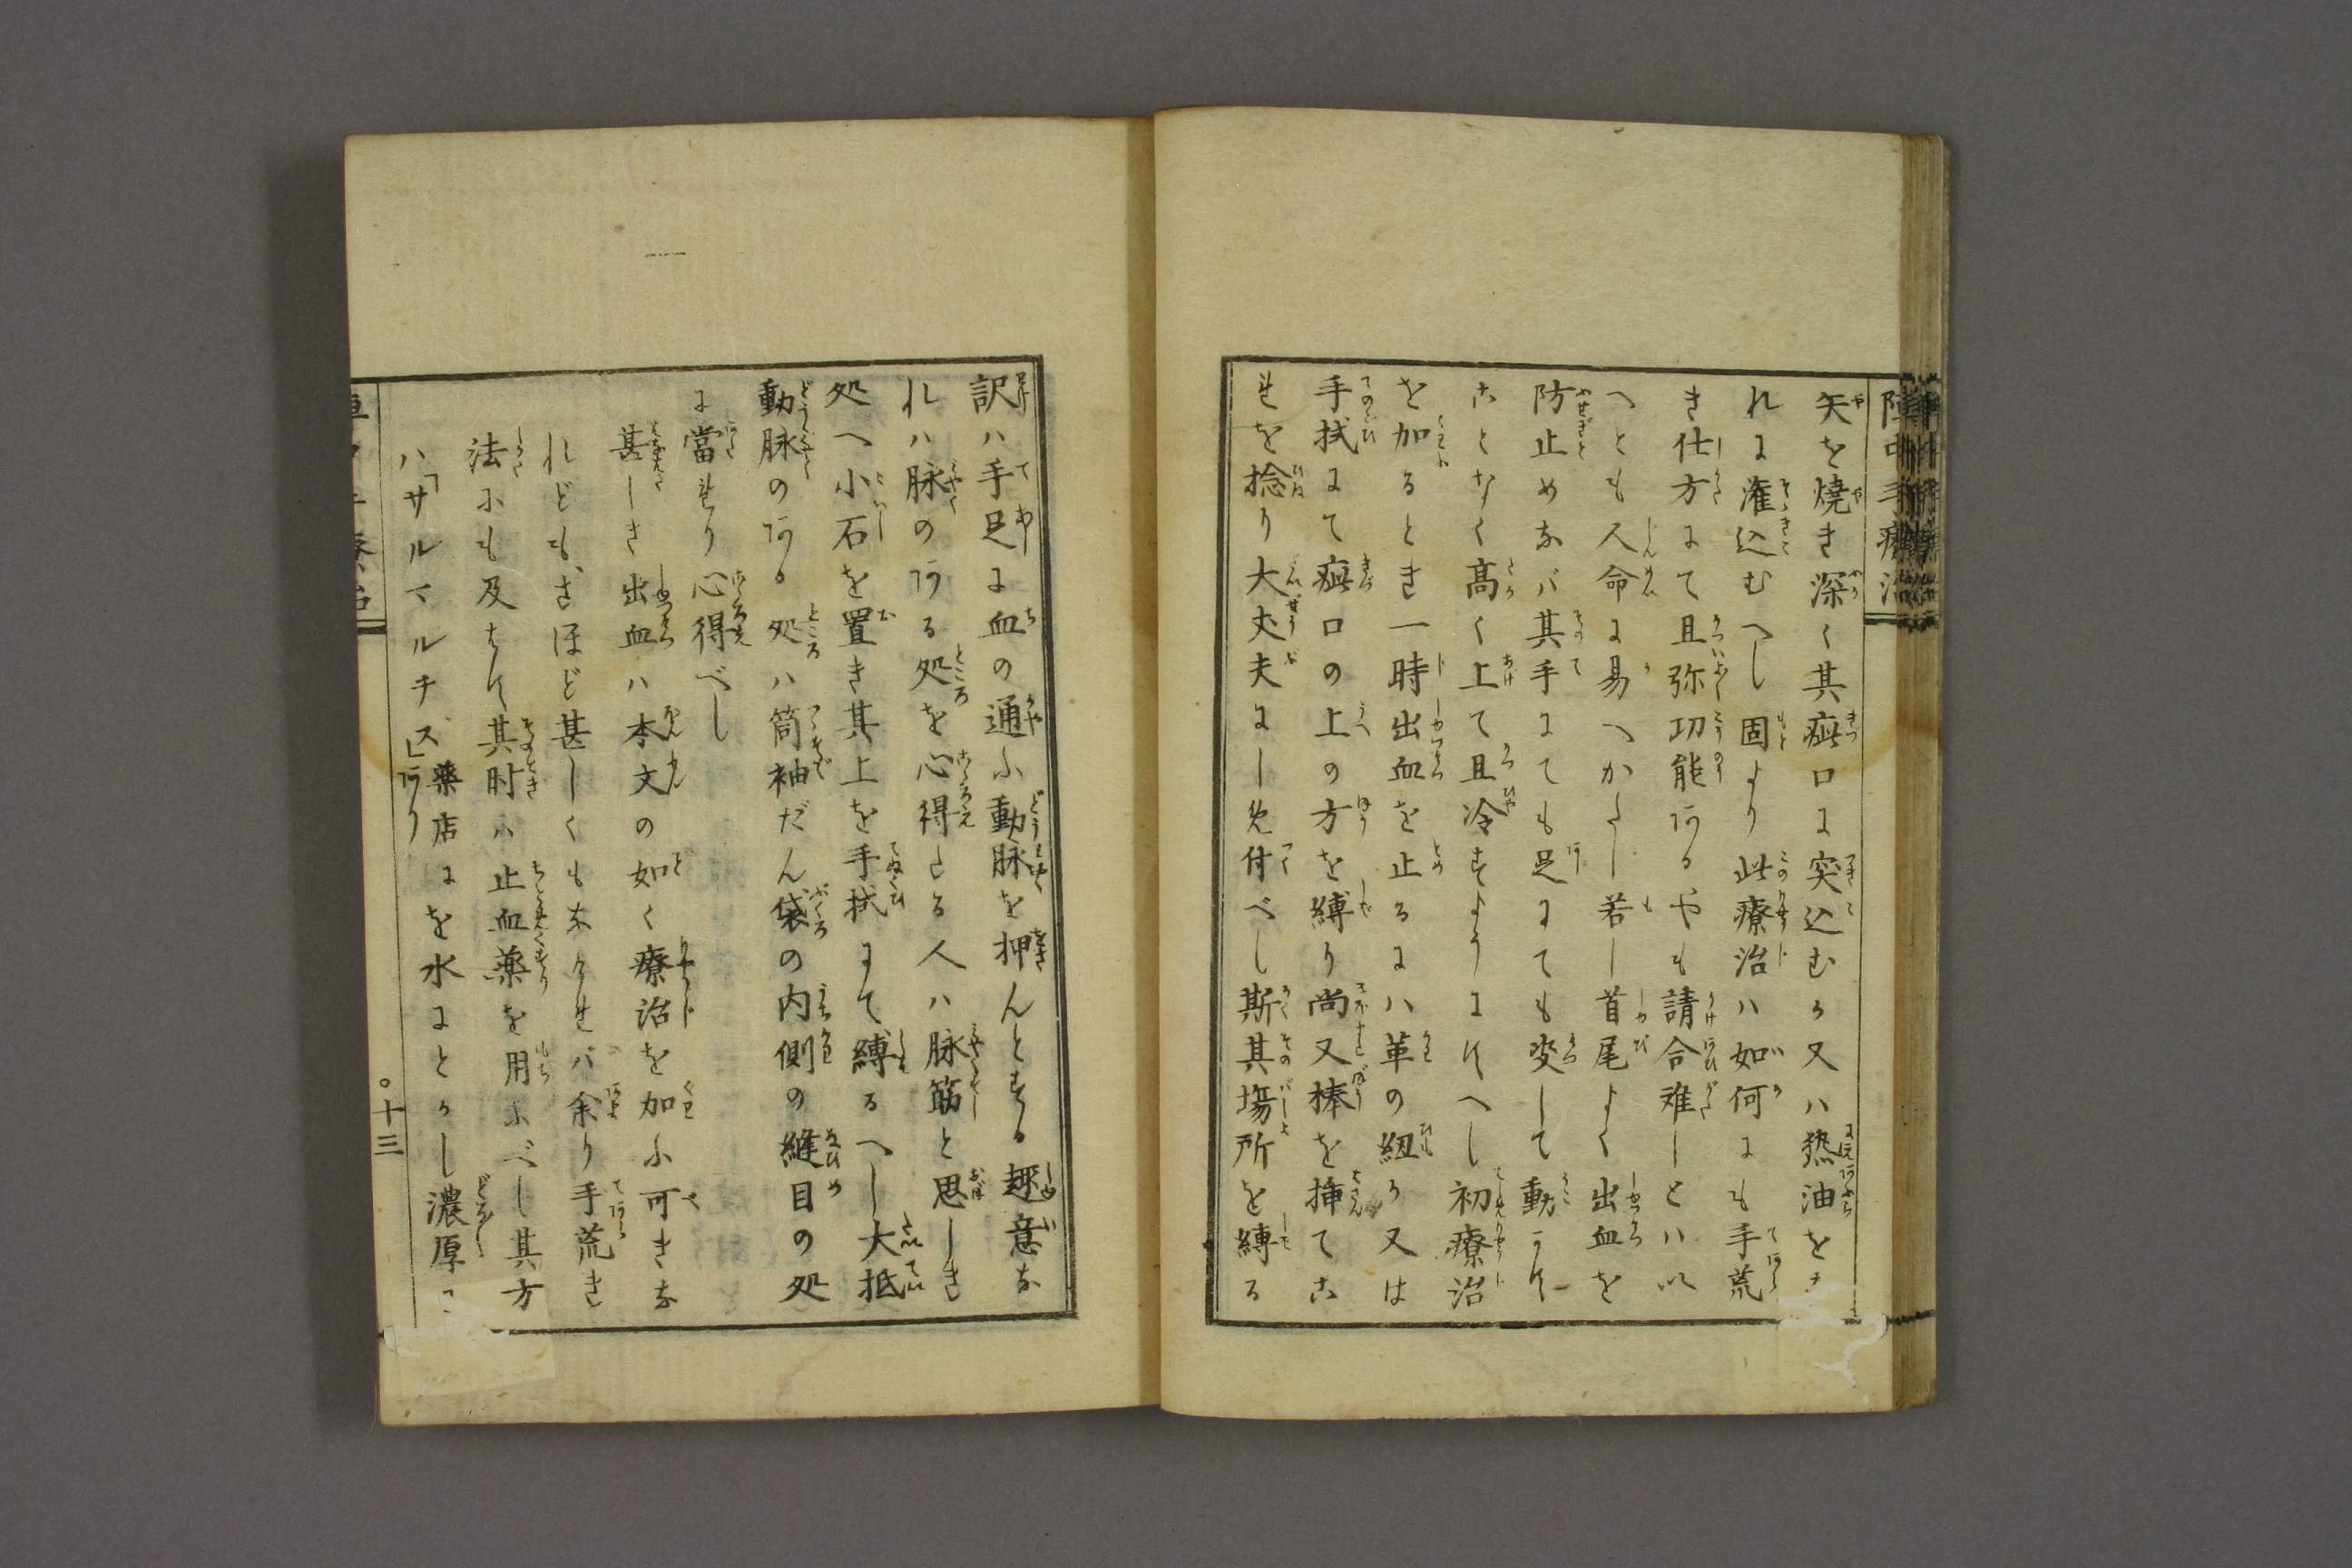 陣中手療治
矢を焼き深く其疵口に突込むか又ハ熱油を
れに潅込むへし固より此療治ハ如何にも手荒
き仕方にて且弥功能あるやも請合難しとハい
へとも人命に易へかたし若し首尾よく出血を
防止めなバ其手にても足にても变して動かす
ことなく高く上て且冷すようにすへし初療治
を加るとき一時出血を止るにハ革の紐か又は
手拭にて疵口の上の方を縛り尚又棒を挿てこ
れを捻り大丈夫にし免付べし斯其塲所を縛る
訳ハ手足に血の通ふ動脉を押んとする趣意な
れハ脉のある処を心得たる人ハ脉筋と思しき
処へ小石を置き其上を手拭にて縛るへし大抵
動脉のある処ハ筒袖だん袋の内側の縫目の処
に當れり心得べし
甚しき出血ハ本文の如く療治を加ふ可きな
れども、さほど甚しくもなけれバ余り手荒き
法にも及はす其时ハ止血薬を用ふべし其方
ハ「サルマルチス」薬店にあり を水にとかし濃厚
十三